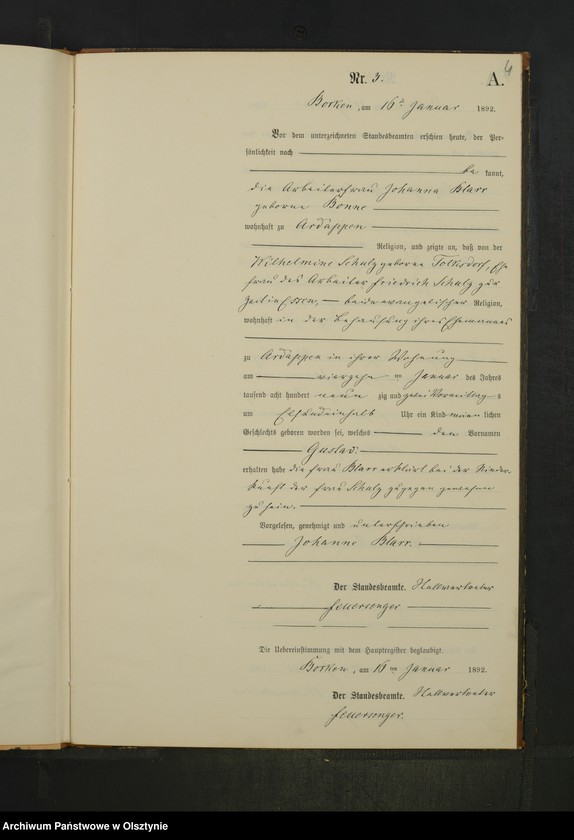 4
Nr. 3. A.
Borken, am 16ten Januar 1892.
Vor dem unterzeichneten Standesbeamten erschien heute, der Per-
sönlichkeit nach
be kannt,
die Arbeiterfrau Johanna Blarr
geborene Bonne
wohnhaft zu Ardappen
Religion, und zeigte an, daß von der
Wilhelmine Schulz geborene Tolksdorf, Ehe
frau des Arbeiter Friedrich Schulz zur
Zeit in Essen, beide evangelischer Religion,
wohnhaft in der Behausung ihres Ehemannes
zu Ardappen in ihrer Wohnung
am vierzehn ten Januar des Jahres
tausend acht hundert neun zig und zwei Vormittag s
um Elf und einhalb Uhr ein Kind männ lichen
Geschlechts geboren worden sei, welches den Vornamen
Gustav
erhalten habe die Frau Blarr erklärt bei der Nieder-
kunft der Frau Schulz zugegen gewesen
zu sein.
Vorgelesen, genehmigt und unterschrieben
Johanne Blarr.
Der Standesbeamte.
Feuersenger
Die Uebereinstimmung mit dem Hauptregister beglaubigt.
Borken, am 16ten Januar 1892.
Der Standesbeamte.
Feuersenger.
Archiwum Państwowe w Olsztynie